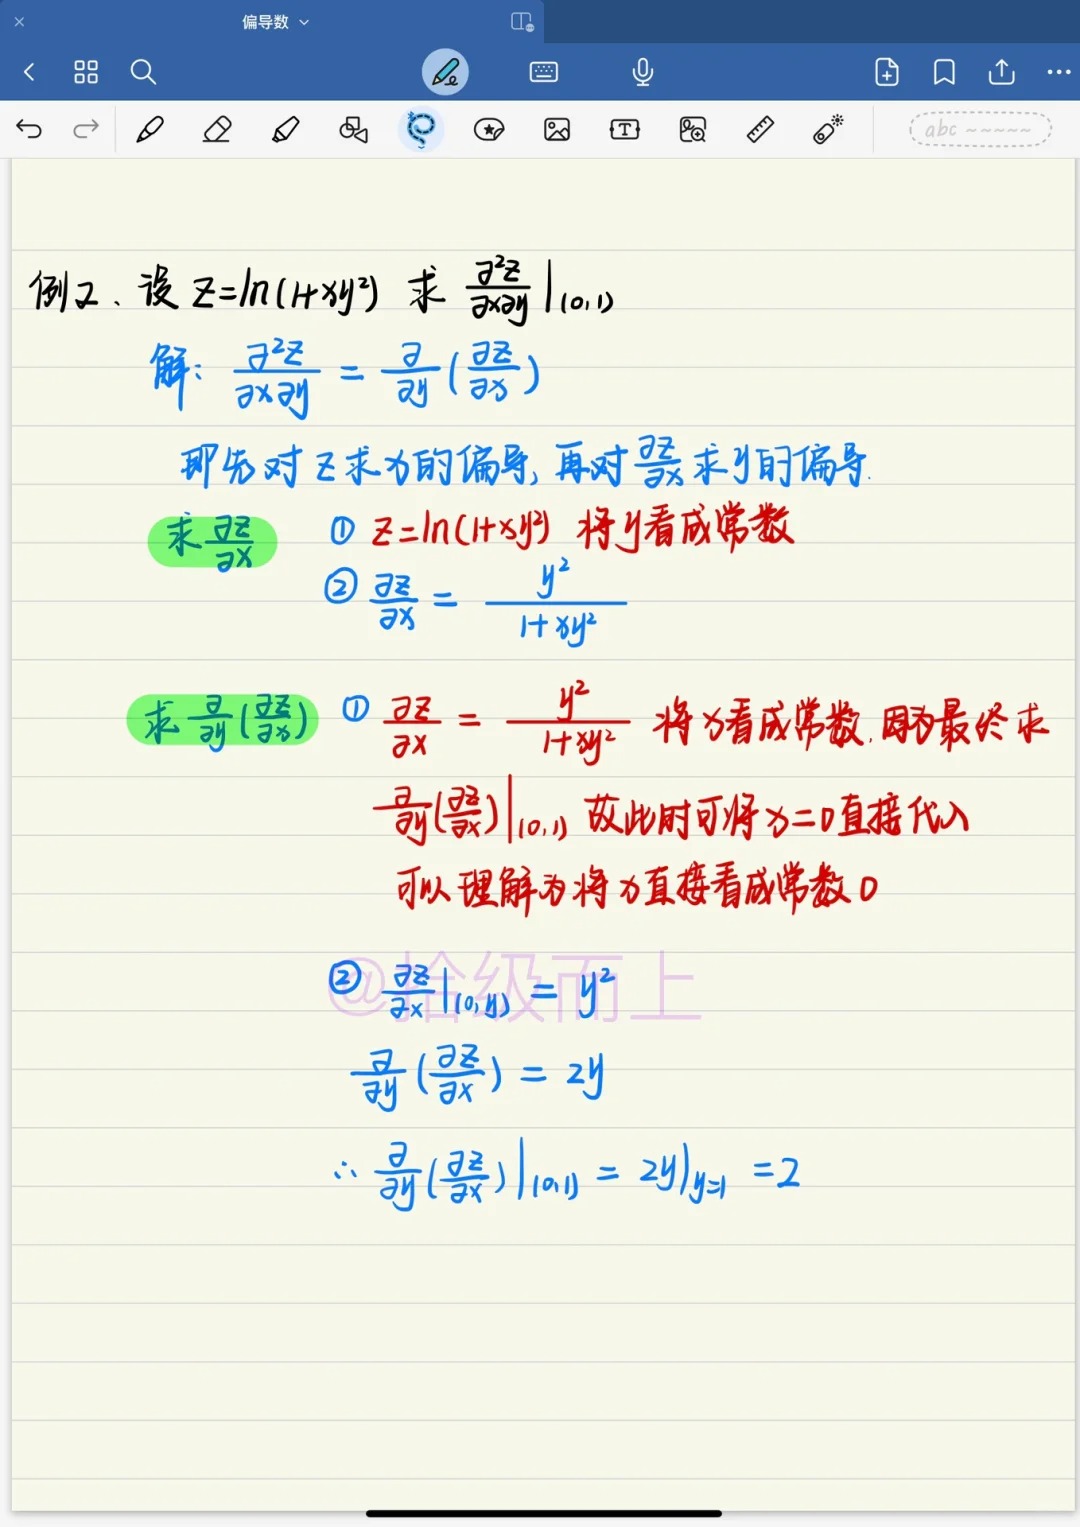 偏导数
abc ~~~~~
例2、设 z=ln(1+xy²) 求 ∂²z/∂x∂y |(0,1)
解: ∂²z/∂x∂y = ∂/∂y (∂z/∂x)
即先对z求x的偏导, 再对 ∂z/∂x 求y的偏导.
求 ∂z/∂x ① z=ln(1+xy²) 将y看成常数
② ∂z/∂x = y²/(1+xy²)
求 ∂/∂y (∂z/∂x) ① ∂z/∂x = y²/(1+xy²) 将x看成常数, 因为最终求
∂/∂y (∂z/∂x) |(0,1) 故此时可将x=0直接代入
可以理解为将x直接看成常数0
@拾级而上
② ∂z/∂x |(0,y) = y²
∂/∂y (∂z/∂x) = 2y
∴ ∂/∂y (∂z/∂x) |(0,1) = 2y|y=1 = 2